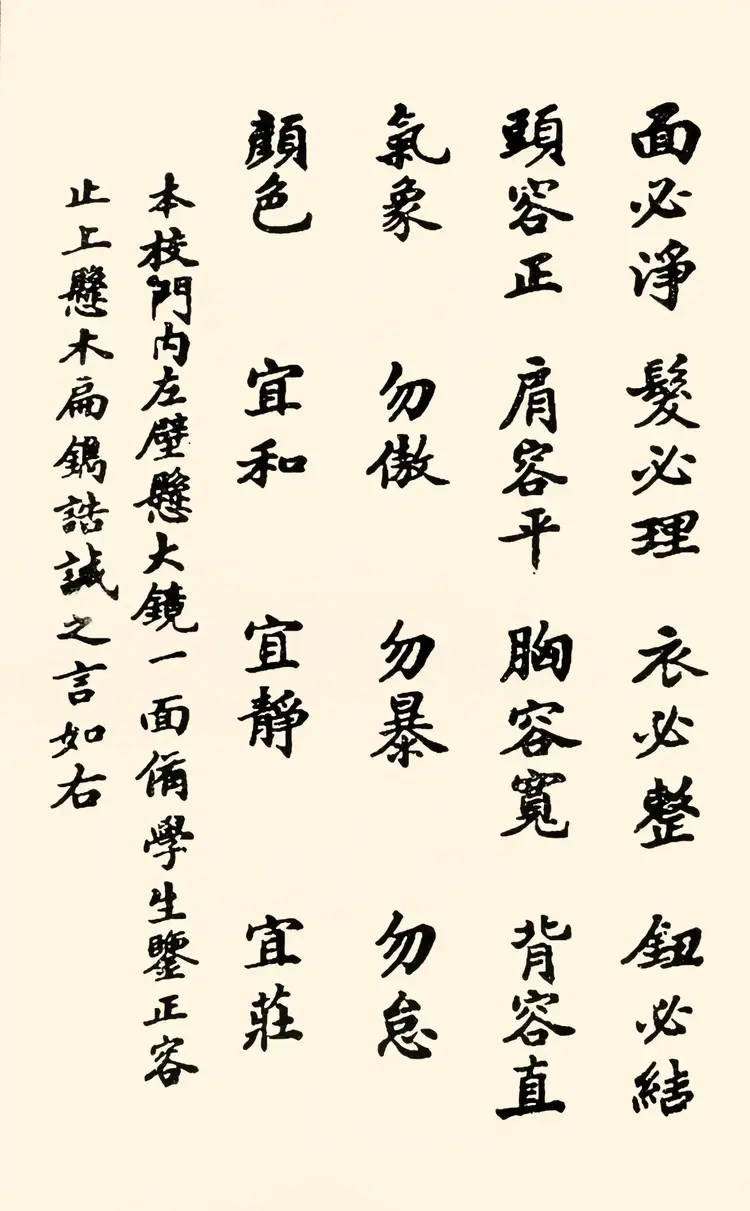 面必淨 髮必理 衣必整 鈕必結
頭容正 肩容平 胸容寬 背容直
氣象 勿傲 勿暴 勿怠
顏色 宜和 宜靜 宜莊
本校門內左壁懸大鏡一面備學生鑒正容
止上懸木扁鐫誥誡之言如右